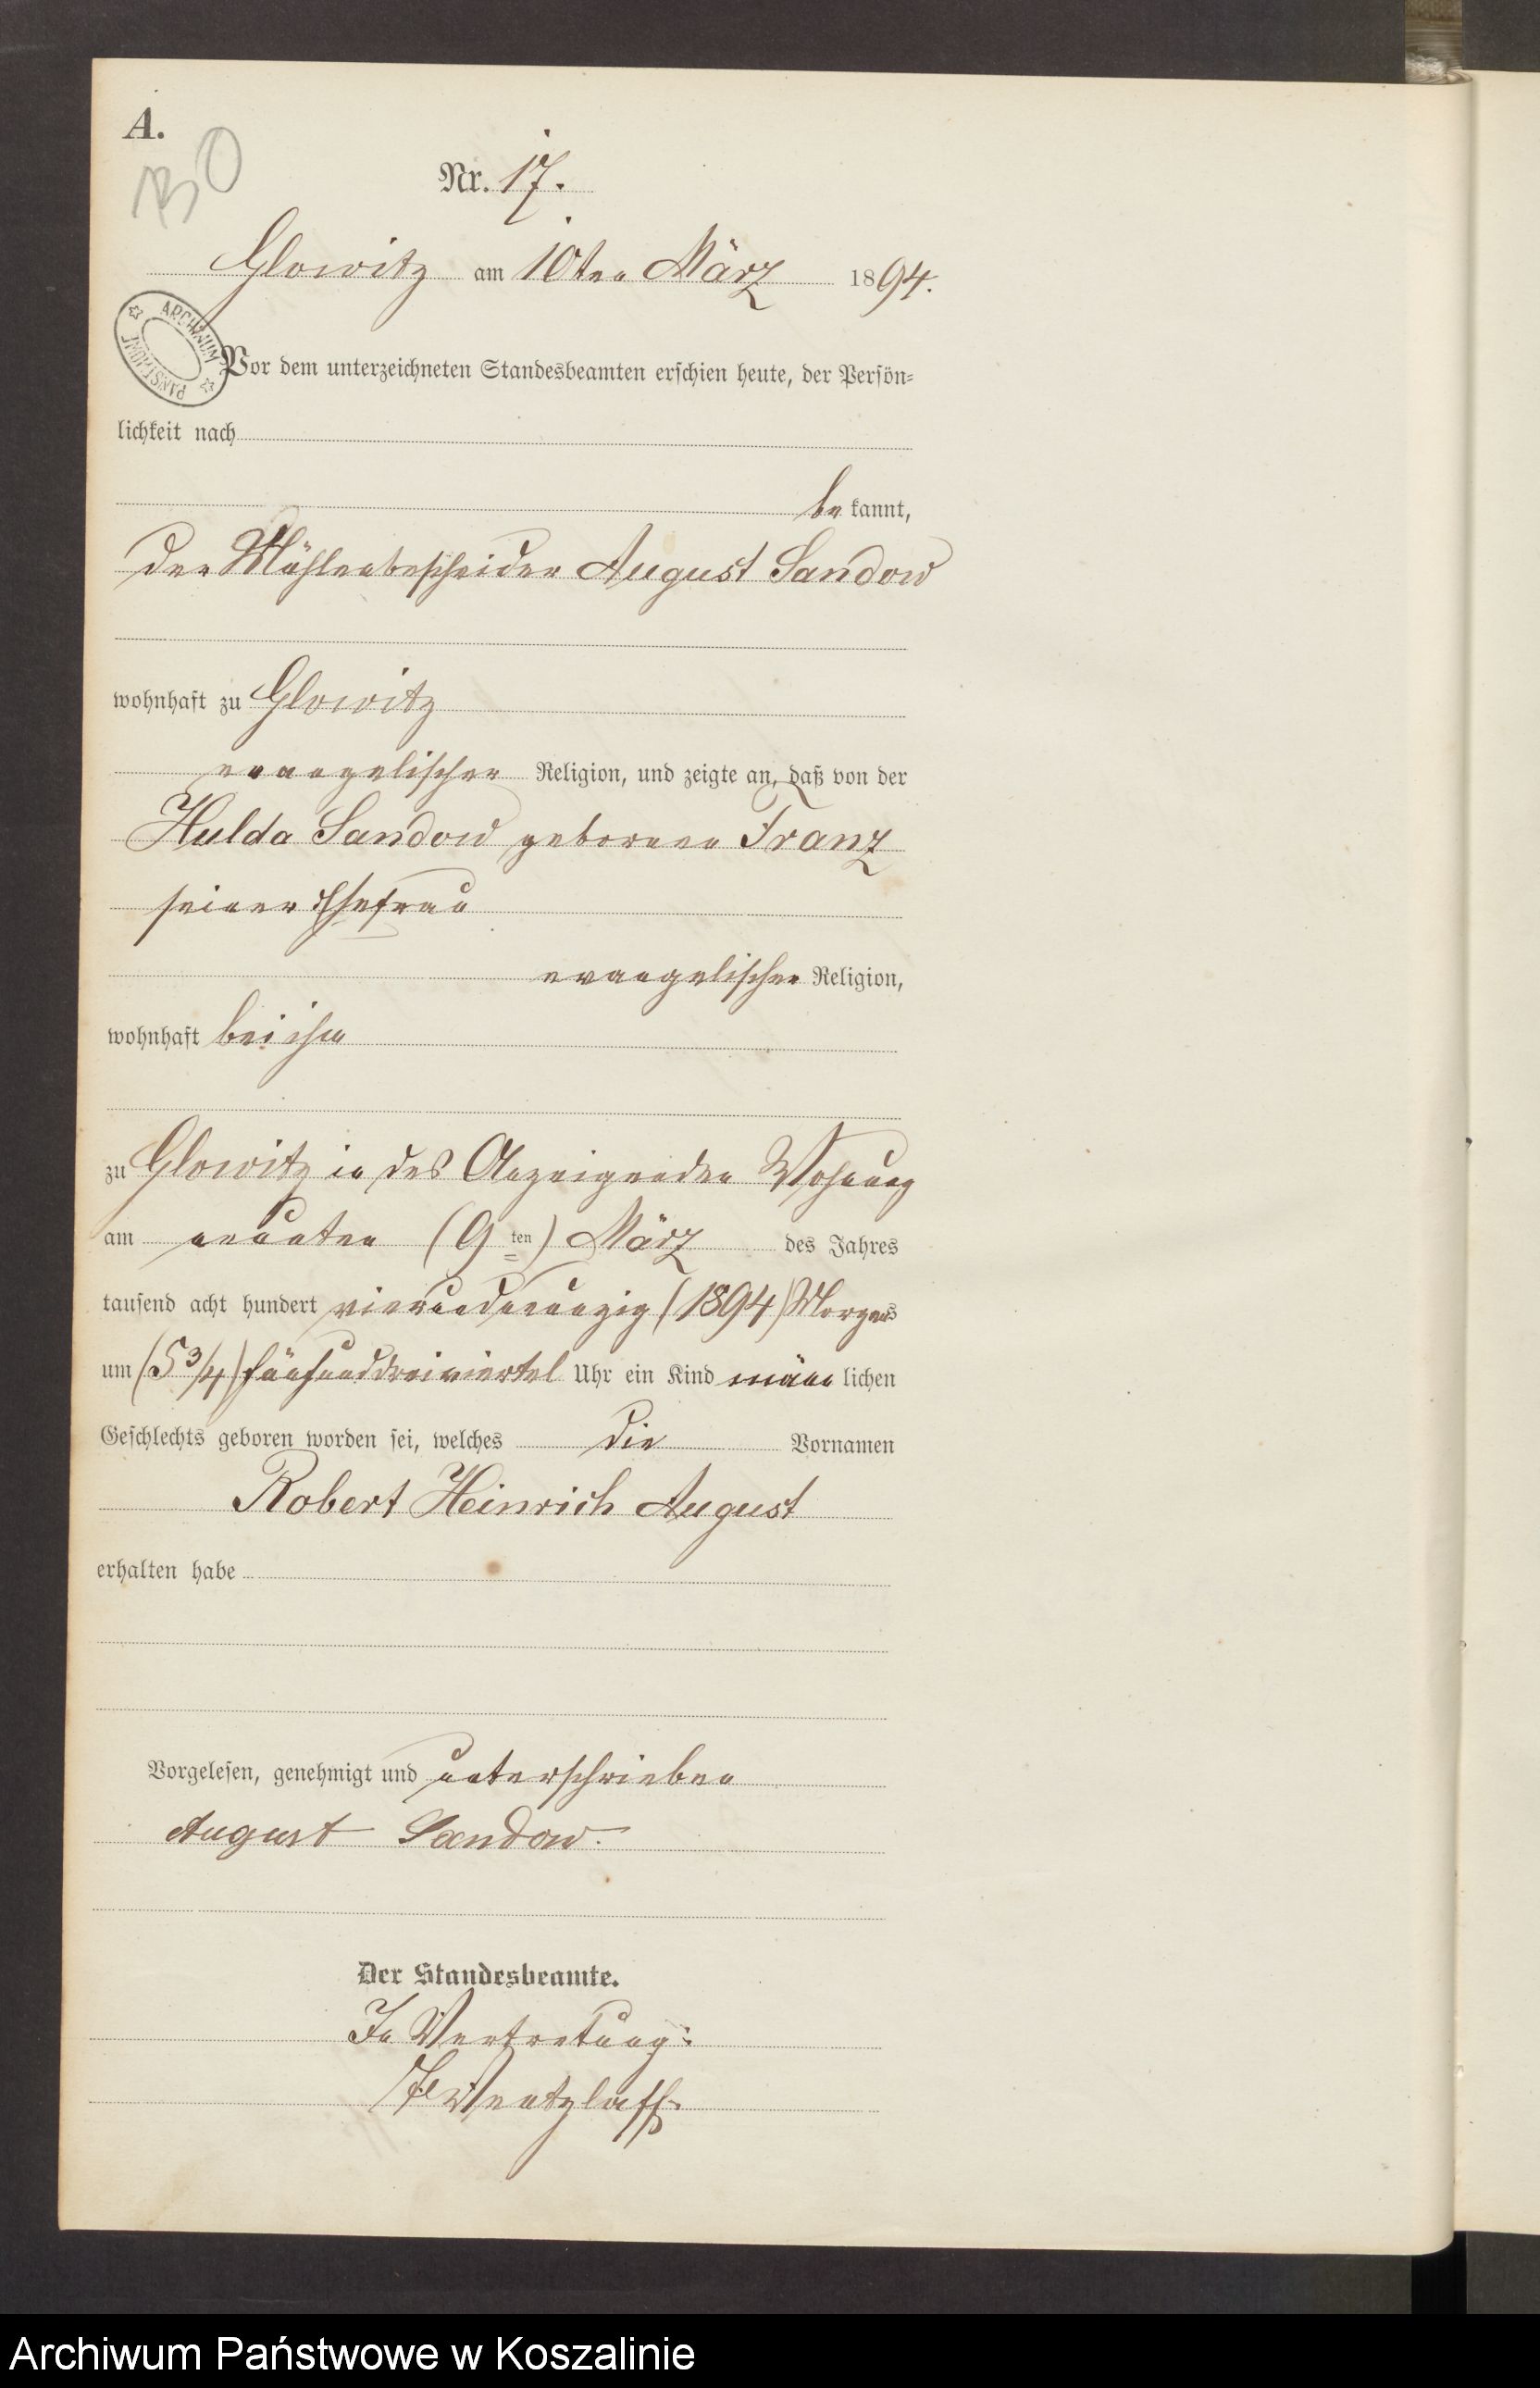 A.
Nr. 17.
Glowitz am 10ten März 1894.
ARCHIWUM PAŃSTWOWE
Vor dem unterzeichneten Standesbeamten erschien heute, der Persön-
lichkeit nach
be kannt,
der Mühlenbescheider August Sandow
wohnhaft zu Glowitz
evangelischer Religion, und zeigte an, daß von der
Hulda Sandow geborenen Franz
seiner Ehefrau
evangelischer Religion,
wohnhaft bei ihm
zu Glowitz in des Anzeigenden Wohnung
am neunten (9ten) März des Jahres
tausend acht hundert vierundneunzig (1894) Morgens
um (5 3/4) fünfunddreiviertel Uhr ein Kind männlichen
Geschlechts geboren worden sei, welches die Vornamen
Robert Heinrich August
erhalten habe
Vorgelesen, genehmigt und unterschrieben
August Sandow.
Der Standesbeamte.
In Vertretung:
Wentzlaff.
Archiwum Państwowe w Koszalinie